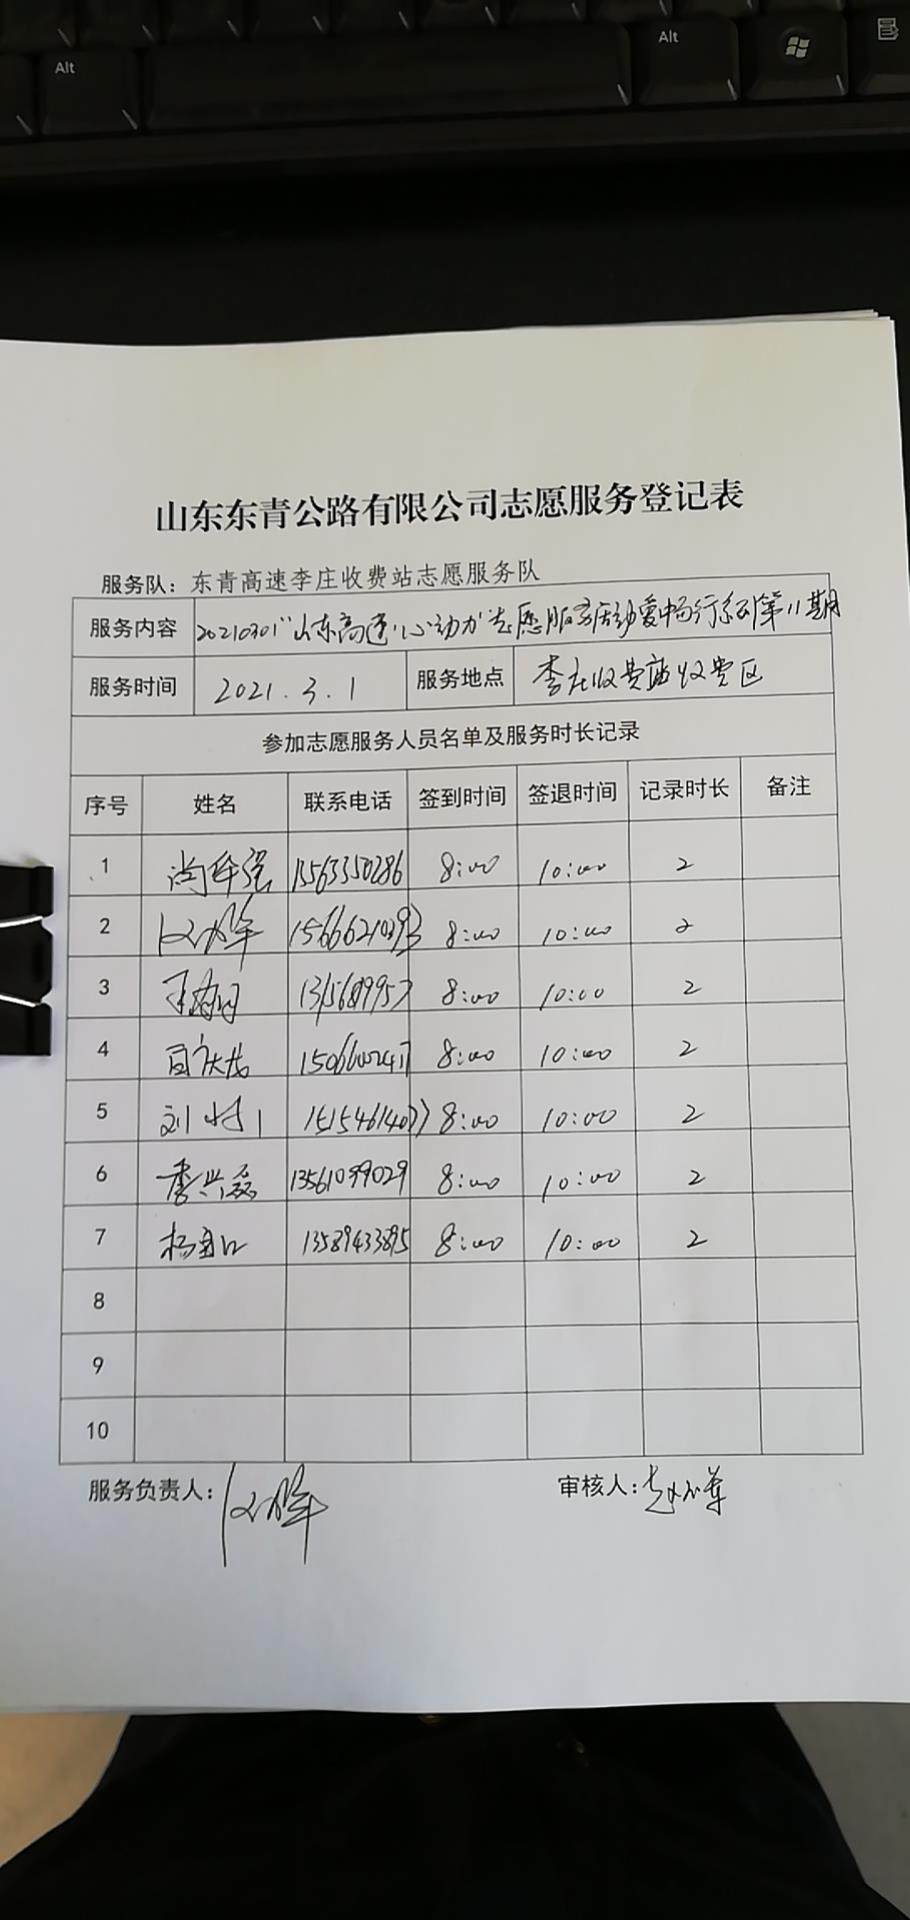 Alt
Alt
山东东青公路有限公司志愿服务登记表
服务队：东青高速李庄收费站志愿服务队
服务内容 20210301"山东高速心动力"志愿服务活动爱畅行系列第11期
服务时间 2021.3.1 服务地点 李庄收费站收费区
参加志愿服务人员名单及服务时长记录
序号 姓名 联系电话 签到时间 签退时间 记录时长 备注
1 尚华强 13563350286 8:00 10:00 2
2 8:00 10:00 2
3 8:00 10:00 2
4 8:00 10:00 2
5 8:00 10:00 2
6 李兴磊 13561099029 8:00 10:00 2
7 13589433895 8:00 10:00 2
8
9
10
服务负责人： 审核人：